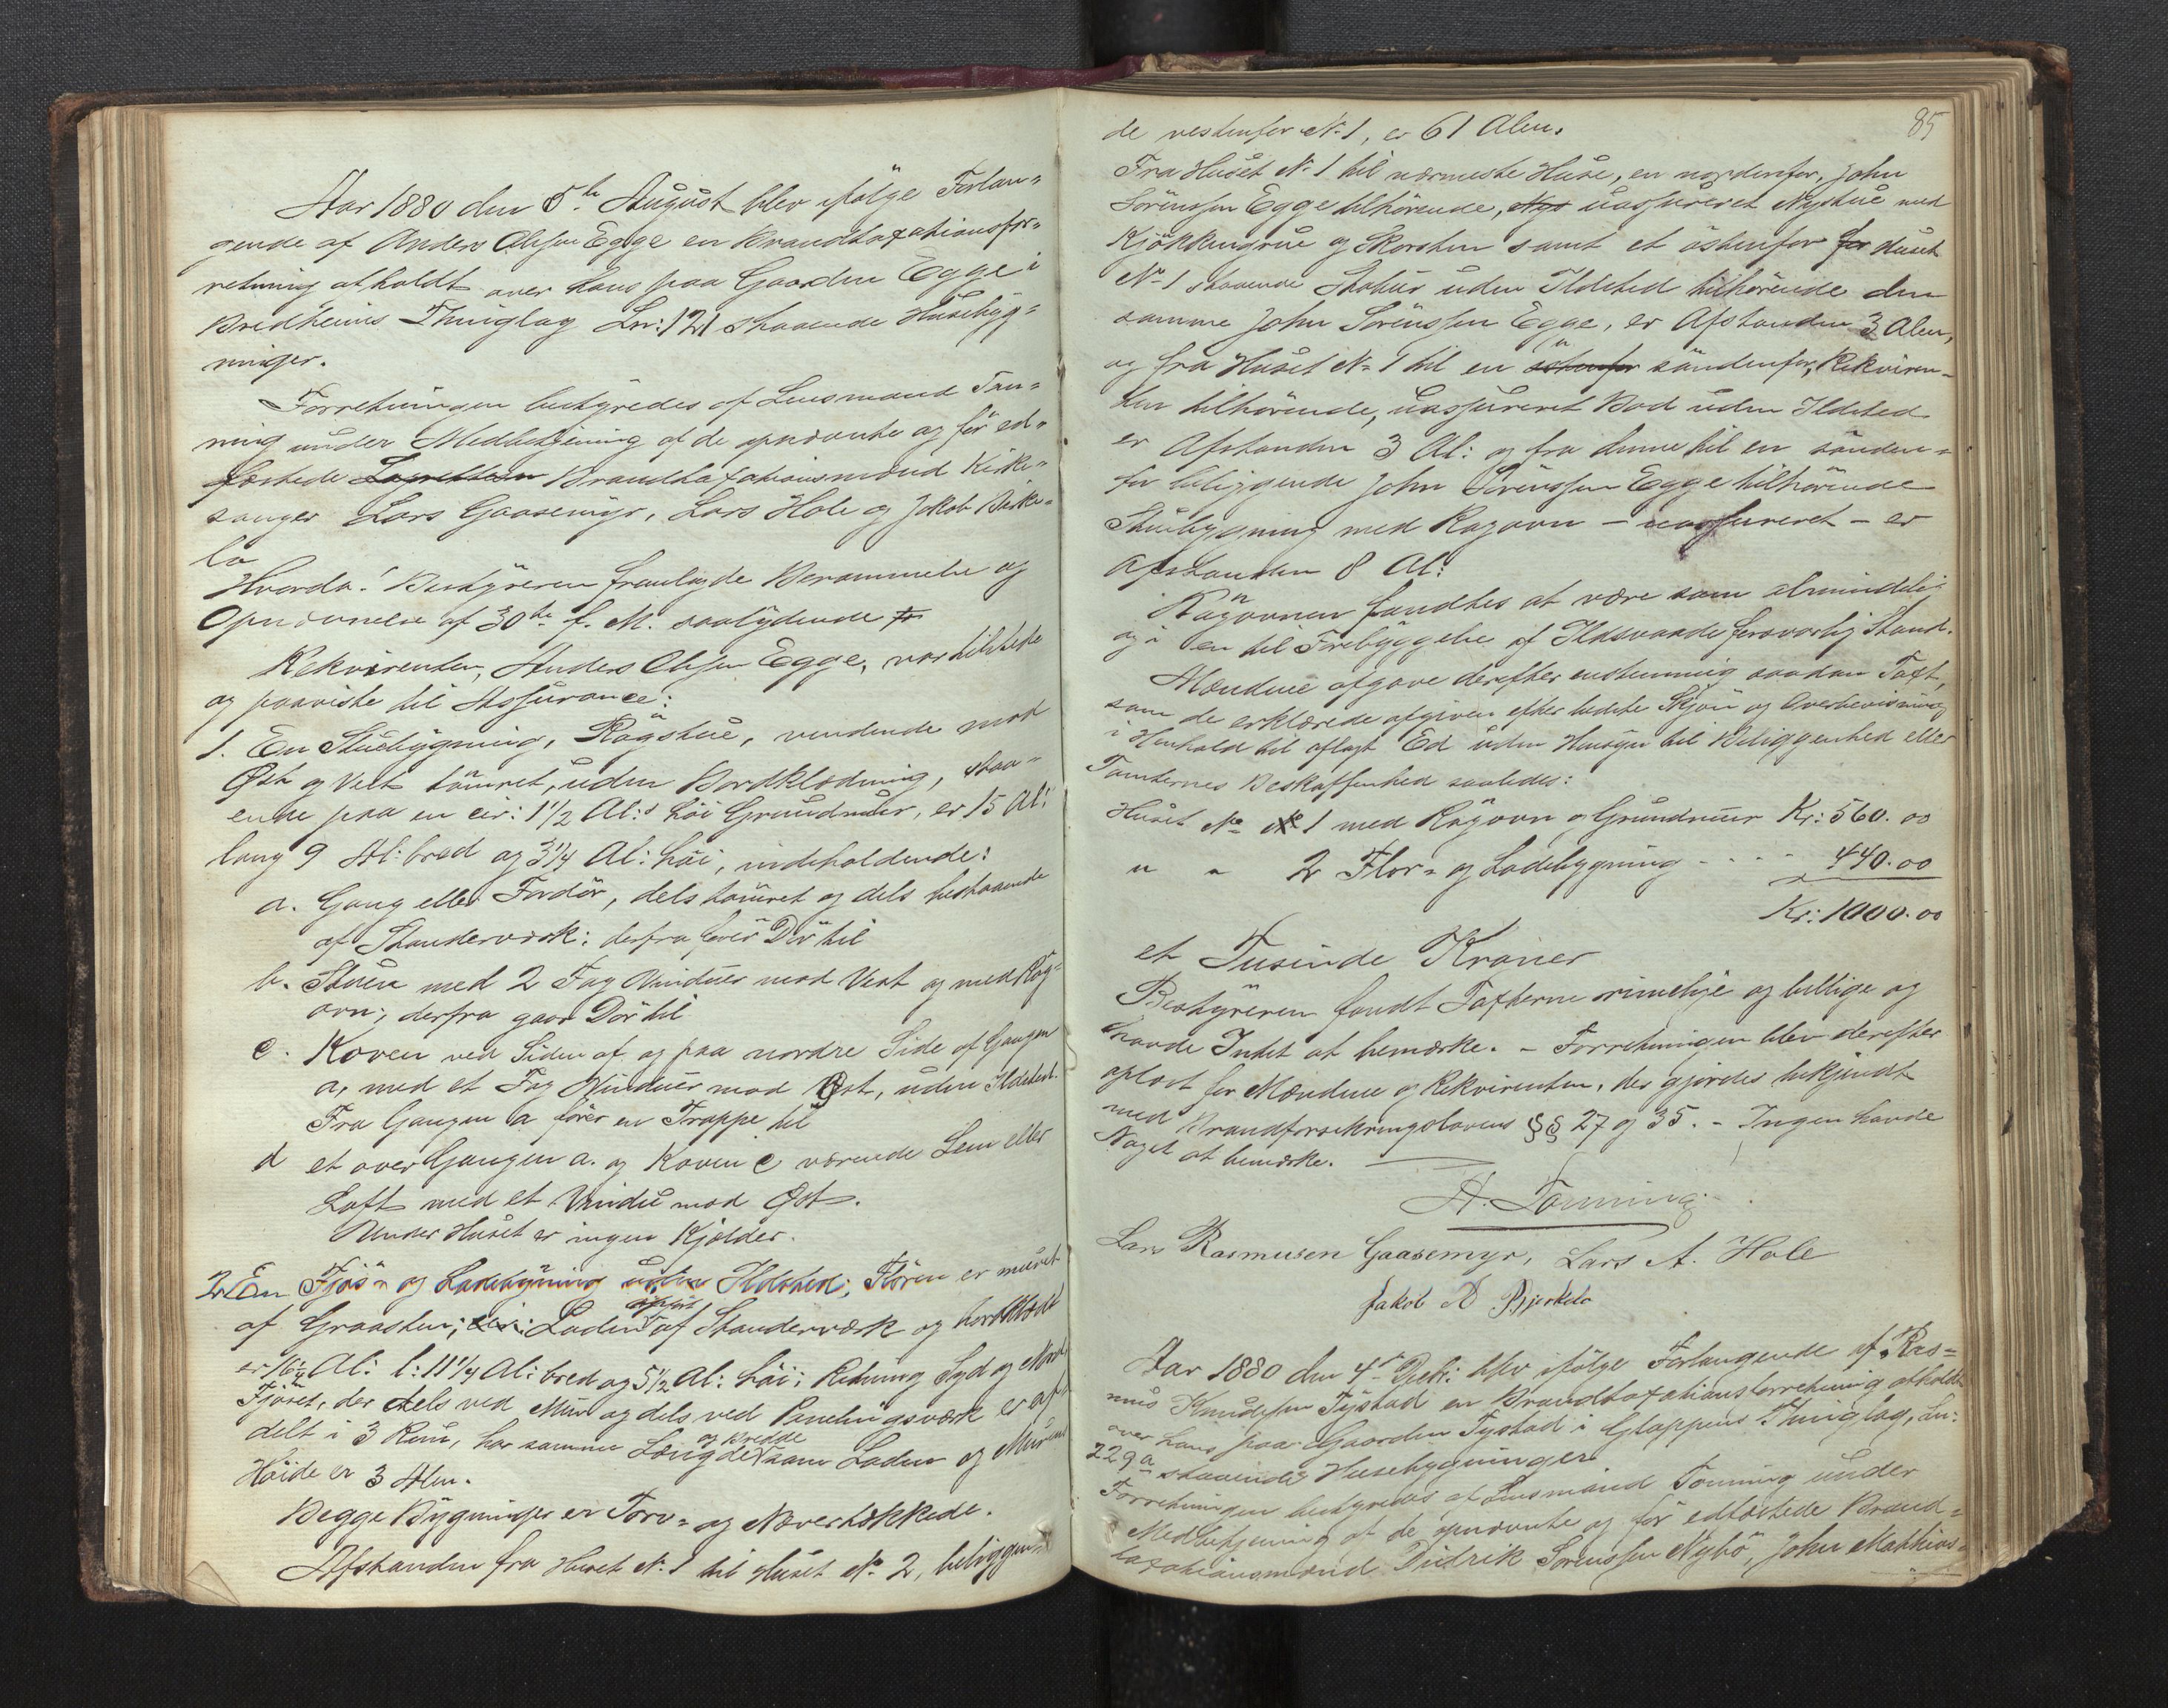 Aar 1880 den 5te August blev ifölge Forlan-
gende af Anders Olsen Egge en Brandtaxationsfor-
retning afholdt over hans paa Gaarden Egge i
Bredheims Thinglag Lnr: 121 staaende Husebyg-
ninger.
Forretningen bestyredes af Lensmand Ton-
ning under Medbetjening af de opnævnte og för ed-
fæstede Lagrettem Brandtaxationsmænd Kirke-
sanger Lars Gaasemyr, Lars Hole og Jakob Birke-
lo
Hvorda! Bestyreren fremlagde Berammelse og
Opnævnelse af 30te f. M. saalydende
Rekvirenten, Anders Olsen Egge, var tilstede
og paaviste til Assurance:
1. En Stuebygning, Rögstue, vendende mod
Øst og Vest tömret, uden Bordklædning, staa-
ende paa en cir: 1 1/2 Al:s höi Grundmur, er 15 Al:
lang 9 Al: bred og 3 1/4 Al: höi, indeholdende:
a. Gang eller Fordör, dels tömret og dels bestaaende
af Standerværk; derfra förer Dör til
b. Stuen med 2 Fag Vinduer mod Vest og med Rög-
ovn; derfra gaar Dör til
c. Koven ved Siden af og paa nordre Side af Gangen
a, med et Fag Vinduer mod Øst, uden Ildsted.
Fra Gangen a förer en Trappe til
d et over Gangen a. og Koven c værende Lem eller
Loft med et Vindu mod Øst.
Under Huset er ingen Kjælder.
2. En Fjös- og Ladebygning uden Ildsted; Flören er muret
af Graasten; Laden opfört af Standerværk og bordklædt
er 16 1/4 Al: l: 11 1/4 Al: bred og 5 1/2 Al: höi; Retning Syd og Nord,
Fjöset, der dels ved Mur og dels ved Panelingsværk er af-
delt i 3 Rum, har samme Længde og Bredde som Laden og Murens
Höide er 3 Alen.
Begge Bygninger er Torv- og Nævertækkede.
Afstanden fra Huset No 1 til Huset No 2, beliggen-
85
de vestenfor No 1, er 61 Alen.
Fra Huset No 1 til nærmeste Huse, en nordenfor, John
Sörenssen Egge tilhörende, Nys uassureret Nystue med
Kjökkengrue og Skorsten samt et östenfor for Huset
No 1 staaende Stabur uden Ildsted tilhörende den
samme John Sörenssen Egge, er Afstanden 3 Alen,
og fra Huset No 1 til en östenfor söndenfor, Rekviren-
ten tilhörende, uassureret Bod uden Ildsted
er Afstanden 3 Al: og fra denne til en sönden-
for beliggende John Sörenssen Egge tilhörende
Stuebygning med Rögovn - uassureret - er
Afstanden 8 Al:
Rögovnen fandtes at være som almindelig
og i en til Forebyggelse af Ildsvaade forsvarlig Stand.
Mændene afgave derefter enstemmig saadan Taxt,
som de erklærede afgiven efter bedste Skjön og Overbevisning
i Henhold til aflagt Ed uden Hensyn til Beliggenhed eller
Tomternes Beskaffenhed saaledes:
Huset No 1 med Rögovn og Grundmur Kr: 560.00
" " 2 Flor- og Ladebygning - - - - 440.00
Kr: 1000.00
et Tusinde Kroner
Bestyreren fandt Taxterne rimelige og billige og
havde Intet at bemærke. - Forretningen blev derefter
oplæst for Mændene og Rekvirenten, der gjordes bekjendt
med Brandforsikringslovens §§ 27 og 35. - Ingen havde
Noget at bemærke.
A. Tonning.
Lars Rasmusen Gaasemyr, Lars A. Hole
Jakob A Bjerkelo
Aar 1880 den 4de Decbr: blev ifölge Forlangende af Ras-
mus Knudssen Tystad en Brandtaxationsforretning afholdt
over hans paa Gaarden Tystad i Gloppens Thinglag, Lnr:
229a staaende Husebygninger
Forretningen bestyredes af Lensmand Tonning under
Medbetjening af de opnævnte og för edfæstede Brand-
taxationsmænd Didrik Sörenssen Nybö, John Matthias-